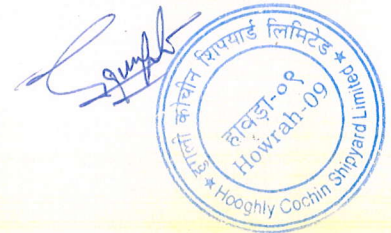 हुगली कोचीन शिपयार्ड लिमिटेड
हावड़ा-०९
Howrah-09
Hooghly Cochin Shipyard Limited